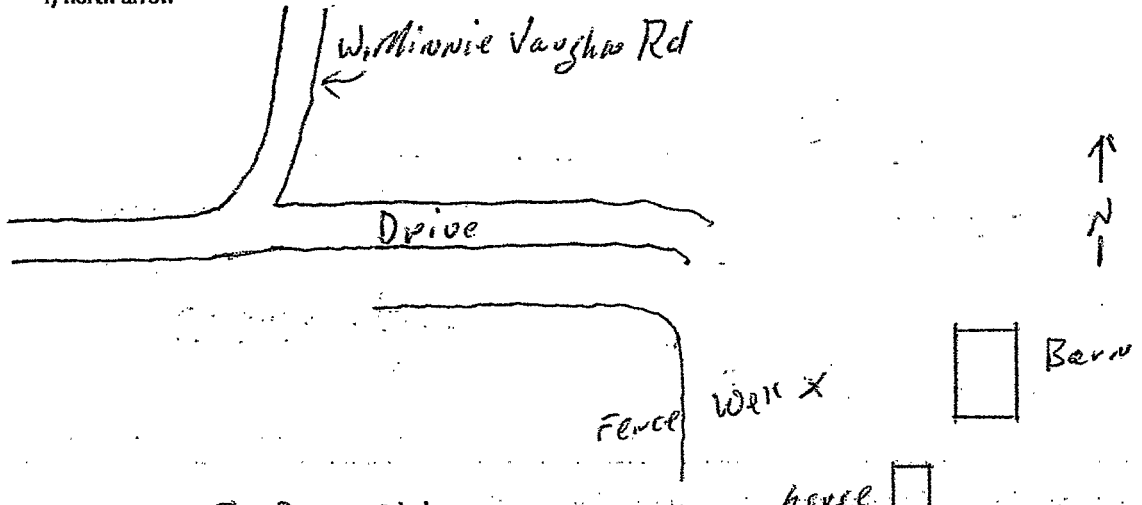 north arrow
W. Minnie Vaughn Rd
Drive
N
Barn
Well X
Fence
house